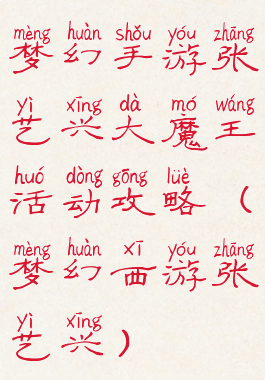 mèng huàn shǒu yóu zhāng
梦幻手游张
yì xīng dà mó wáng
艺兴大魔王
huó dòng gōng lüè
活动攻略（
mèng huàn xī yóu zhāng
梦幻西游张
yì xīng
艺兴）